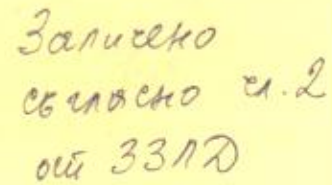 Заличено
съгласно чл. 2
от ЗЗЛД